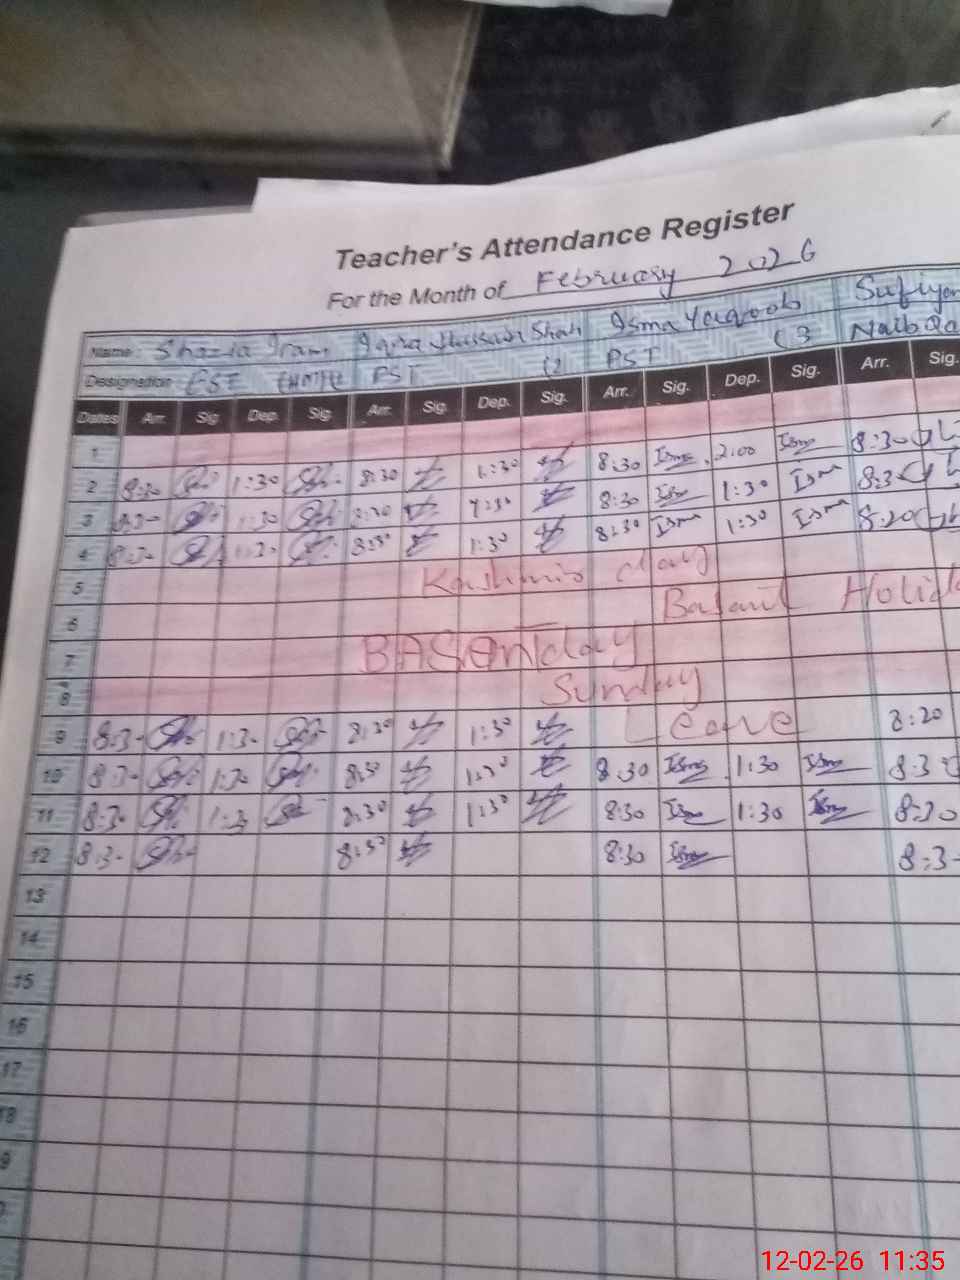 Teacher's Attendance Register
For the Month of February 2026
Name: Shazia Iram Iqra Hussain Shah Isma Yaqoob Sufiyan
Designation EST PST (2 PST (3 Naib Qa
Dates Arr. Sig Dep. Sig. Arr. Sig. Dep. Sig. Arr. Sig. Dep. Sig. Arr. Sig.
1
2 8:30 1:30 8:30 1:30 8:30 Isma 2:00 Isma 8:30
3 8:30 1:30 8:30 1:30 8:30 Isma 1:30 Isma 8:30
4 8:30 1:30 8:30 1:30 8:30 Isma 1:30 Isma 8:20
5 Kashmir day
6 Basant Holid
7 BASANT day
8 Sunday
9 8:30 1:30 8:30 1:30 Leave 8:20
10 8:30 1:30 8:30 1:30 8:30 Isma 1:30 Isma 8:30
11 8:30 1:30 8:30 1:30 8:30 Isma 1:30 Isma 8:30
12 8:30 8:30 8:30 Isma 8:3-
13
14
15
16
17
18
9
12-02-26 11:35